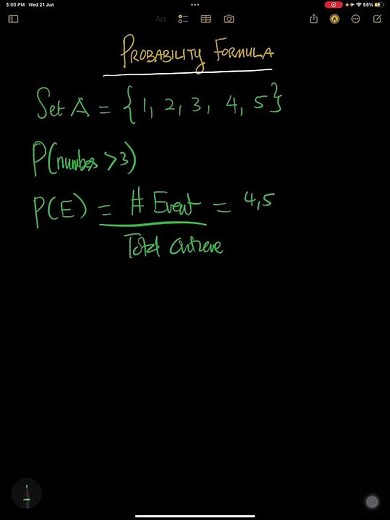 5:00 PM Wed 21 Jun
68%
PROBABILITY FORMULA
Set A = {1, 2, 3, 4, 5}
P(number >3)
P(E) = # Event = 4,5
Total outcome